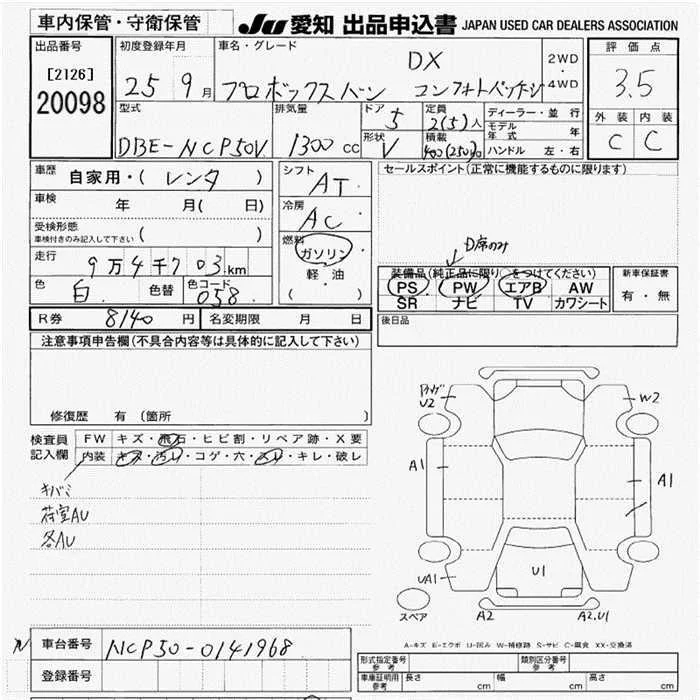 車内保管・守衛保管 JU 愛知 出品申込書 JAPAN USED CAR DEALERS ASSOCIATION
出品番号 初度登録年月 車名・グレード 評価点
[2126] 25 9月 DX 2WD・4WD
20098 プロボックスバン コンフォートパッケージ 3.5
型式 排気量 ドア 5 定員 2(5)人 ディーラー・並行 外装 内装
DBE-NCP50V 1300cc 形状 V 積載 400(250)kg モデル年式 年 C C
ハンドル 左・右
車歴 自家用・( レンタ ) シフト AT セールスポイント(正常に機能するものに限ります)
車検 年 月( 日) 冷房 AC
受検形態
車検付きのみ記入して下さい ( )
燃料 ガソリン D席のみ
走行 9万4千703km 軽油 装備品(純正品に限り○をつけてください) 新車保証書
色 白 色替 色コード 058 ( ) PS PW エアB AW 有・無
SR ナビ TV カワシート
R券 8140円 名変期限 月 日 後日品
注意事項申告欄(不具合内容等は具体的に記入して下さい)
修復歴 有 (箇所 )
検査員記入欄 FW キズ・飛石・ヒビ割・リペア跡・X要
内装 キズ・汚レ・コゲ・穴・スレ・キレ・破レ
キバミ
荷室AU
各AU
U2 W2
A1 A1
UA1 U1
スペア A2 A2.U1
A-キズ E-エクボ U-凹み W-補修跡 S-サビ C-腐食 XX-交換済
車台番号 NCP50-0141968
登録番号
形式指定番号 参考 類別区分番号 参考
車庫証明用 参考 長さ cm 幅 cm 高さ cm